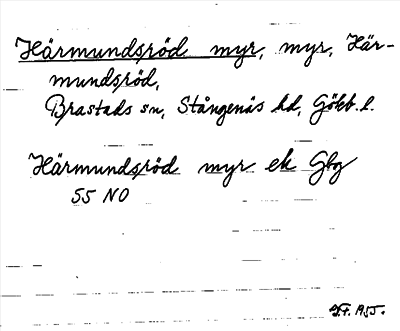 Härmundsröd myr, myr, Här-
mundsröd,
Brastads sn, Stångenäs hd, Götb. l.
Härmundsröd myr ek Gbg
55 NO
1955.